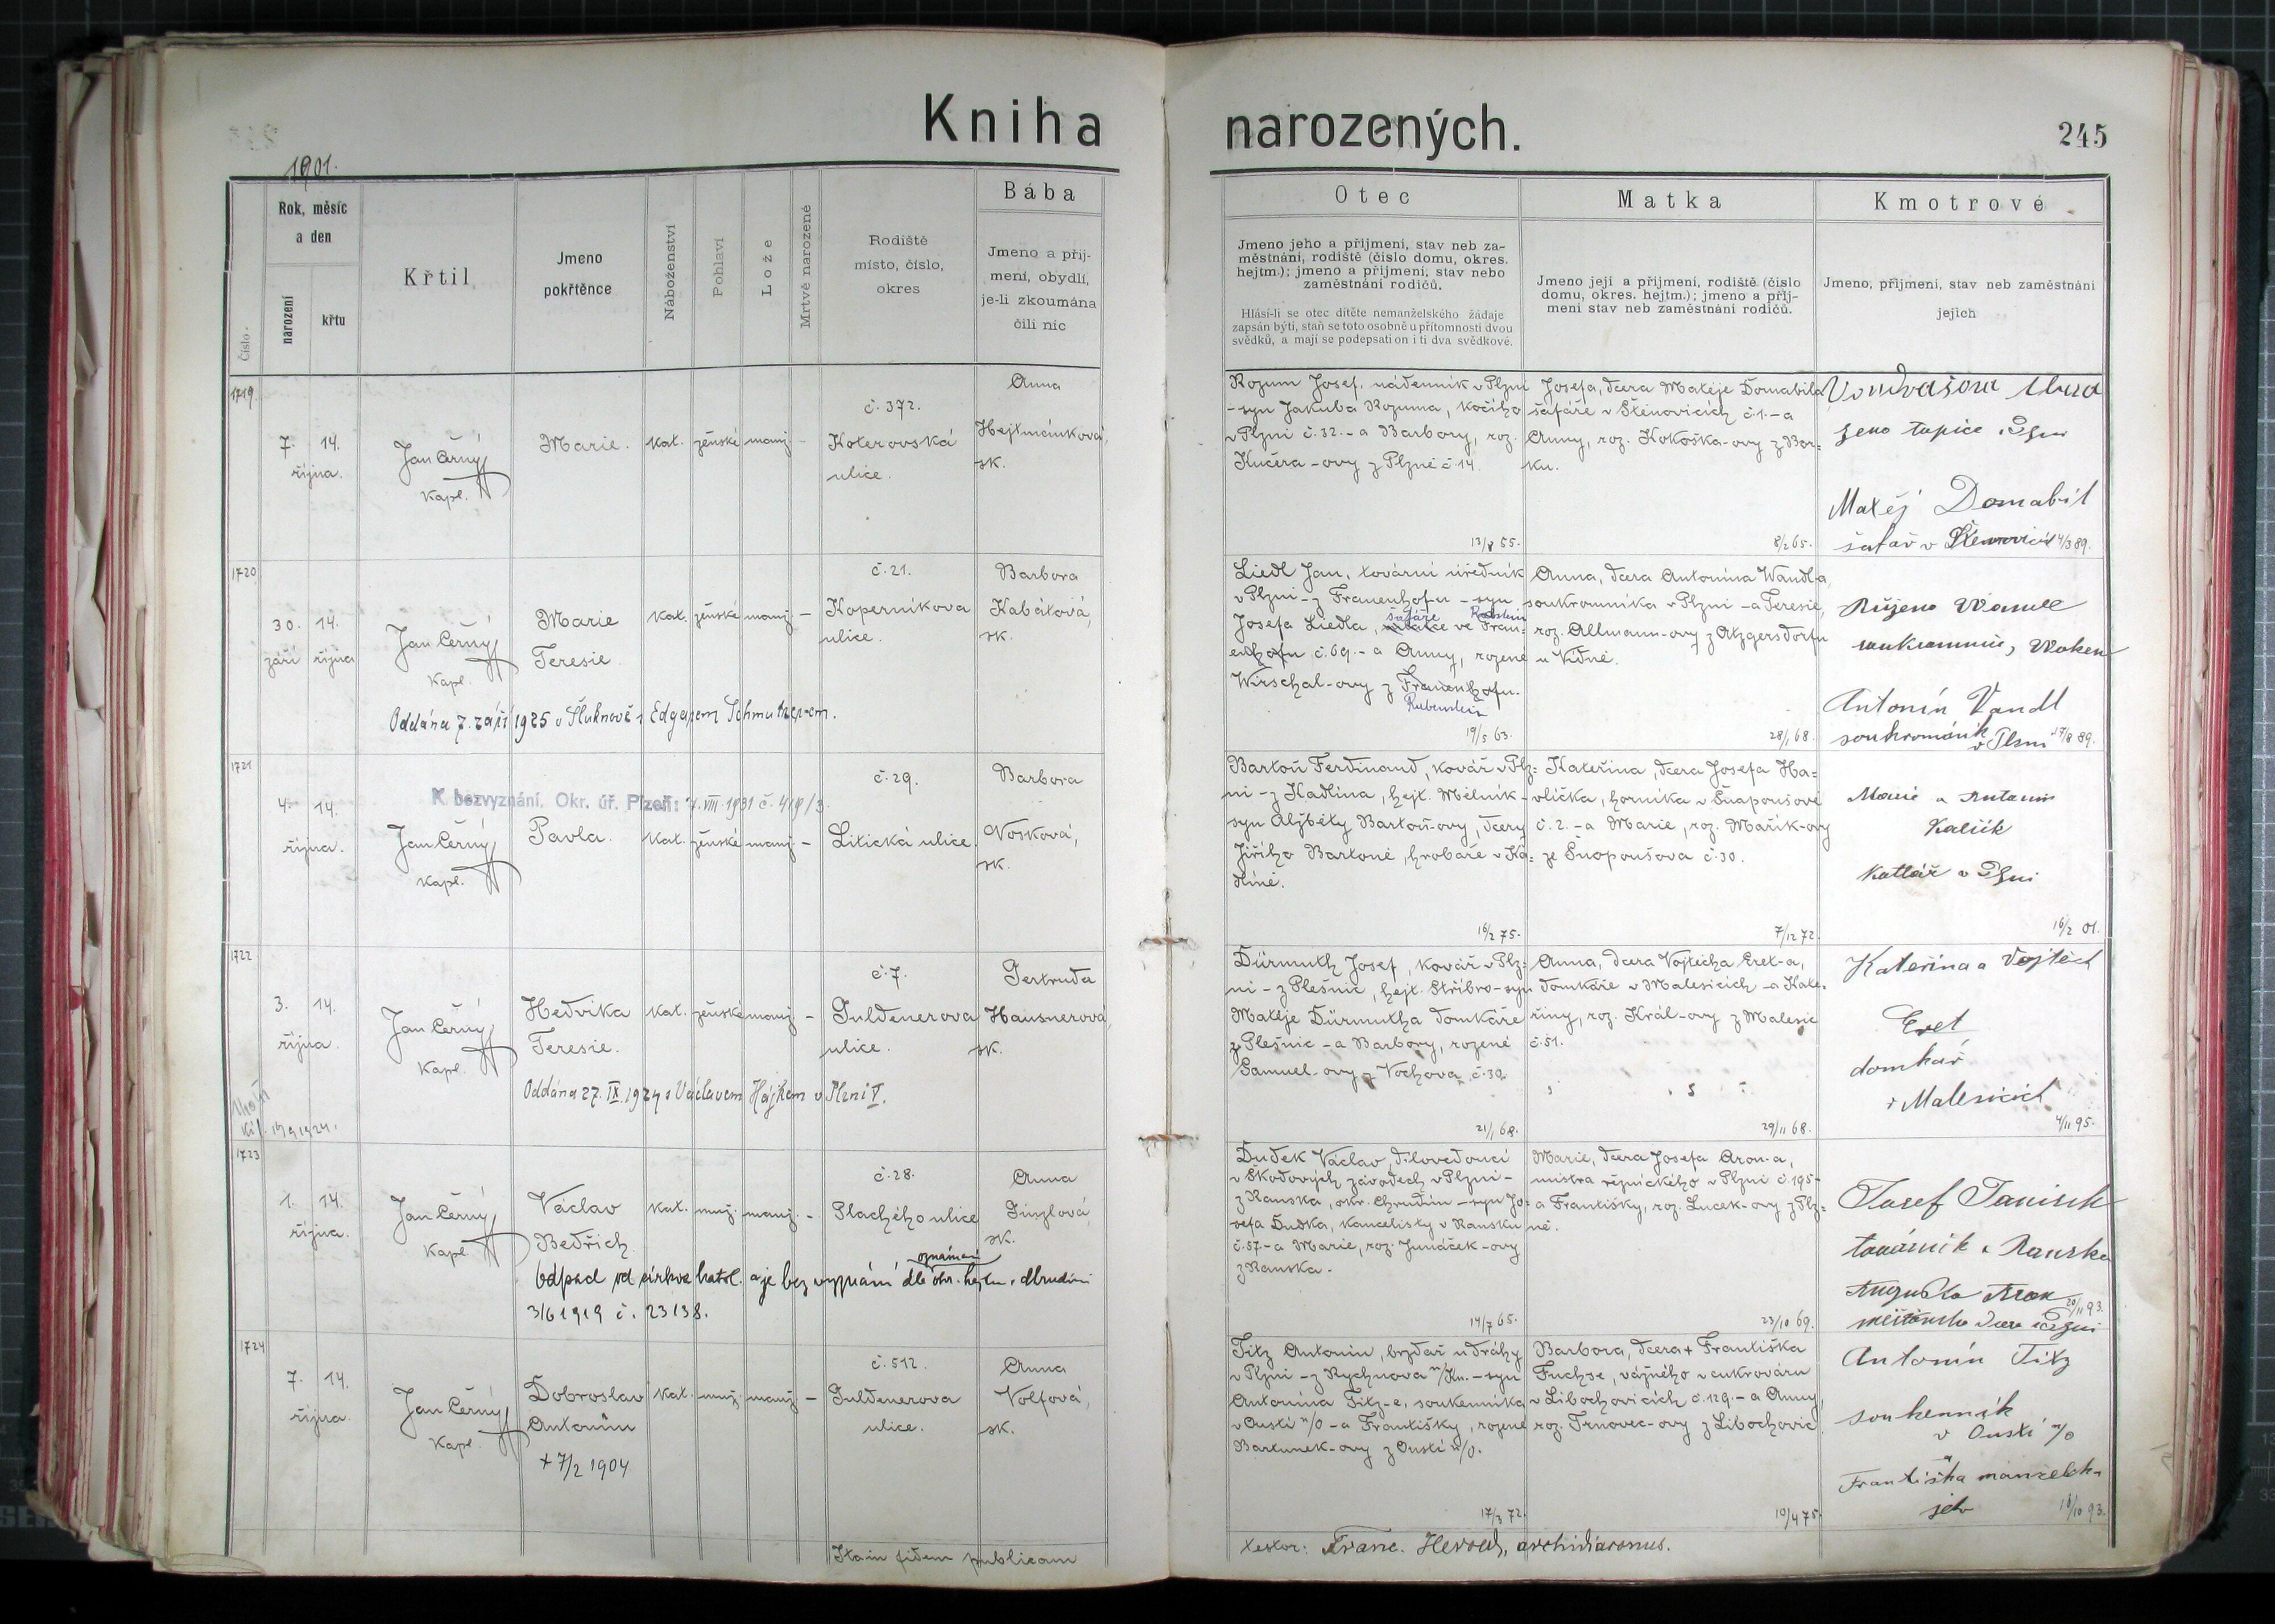 Kniha narozených.
245
1901.
Číslo
Rok, měsíc
a den
narození
křtu
Křtil
Jmeno
pokřtěnce
Náboženství
Pohlaví
Lože
Mrtvě narozené
Rodiště
místo, číslo,
okres
Bába
Jmeno a příj-
mení, obydlí,
je-li zkoumána
čili nic
Otec
Jmeno jeho a příjmení, stav neb za-
městnání, rodiště (číslo domu, okres.
hejtm.); jmeno a příjmení, stav nebo
zaměstnání rodičů.
Hlásí-li se otec dítěte nemanželského žádaje
zapsán býti, staň se toto osobně u přítomnosti dvou
svědků, a mají se podepsati on i ti dva svědkové.
Matka
Jmeno její a příjmení, rodiště (číslo
domu, okres. hejtm.); jmeno a příj-
mení stav neb zaměstnání rodičů.
Kmotrové
Jmeno, příjmení, stav neb zaměstnání
jejich
1719
7. 14.
října.
Jan Černý
Kapl.
Marie.
kat. ženské manž. –
č. 372.
Koterovská
ulice.
Anna
Hejtmánková,
sk.
Rozum Josef, nádenník v Plzni
– syn Jakuba Rozuma, kočího
v Plzni č. 32. – a Barbory, roz.
Kučera-ovy z Plzně č. 14.
13/8 55.
Josefa, dcera Matěje Domabila
šafáře v Štěnovicích č. 1. – a
Anny, roz. Kokoška-ovy z Bor-
ku.
8/2 65.
Vondrašova Anna
žena topiče Plzni
Matěj Domabil
šafář v Štěnovicích 4/3 89.
1720
30. 14.
září října
Jan Černý
Kapl.
Marie
Teresie.
kat. ženské manž. –
č. 21.
Koperníkova
ulice.
Barbora
Kabátová,
sk.
Oddána 7. září 1925 v Šluknově s Edgarem Schmutzer-em.
Liedl Jan, tovární úředník
v Plzni – z Frauenhofu – syn
Josefa Liedla, šafáře ve Frau-
enhofu č. 69. – a Anny, rozené
Wirschal-ovy z Frauenhofu.
Rubenstein
19/5 63.
Anna, dcera Antonína Wandl-a,
soukromníka v Plzni – a Teresie,
roz. Allmann-ovy z Atzgersdorfu
u Vídně.
28/1 68.
Růžena Wandl
Antonín Vandl
soukromník
v Plzni 17/8 89.
1721
4. 14.
října.
Jan Černý
Kapl.
K bezvyznání. Okr. úř. Plzeň: 7. VIII. 1931 č. 419/3
Pavla.
kat. ženské manž. –
Litická ulice.
č. 29.
Barbora
Nosková,
sk.
Bartoň Ferdinand, kovář v Plz-
ni – z Kadlína, hejt. Mělník –
syn Alžběty Bartoň-ovy, dcery
Jiřího Bartoně, hrobaře v Ka-
dlíně.
16/2 75.
Kateřina, dcera Josefa Ha-
vlíčka, horníka v Šnapoušově
č. 2. – a Marie, roz. Mařík-ovy
ze Šnopoušova č. 30.
7/12 72.
Marie a Antonín
Kalčík
Kotlář v Plzni
16/2 01.
1722
3. 14.
října.
Jan Černý
Kapl.
Hedvika
Teresie.
kat. ženské manž. –
č. 7.
Guldenerova
ulice.
Gertruda
Hausnerová,
sk.
Oddána 27. IX. 1924 s Václavem Hájkem v Plzni V.
Dürmuth Josef, kovář v Plz-
ni – z Plešnic, hejt. Stříbro – syn
Matěje Dürmutha domkáře
z Plešnic – a Barbory, rozené
Samuel-ovy z Vochova č. 39.
21/1 68.
Anna, dcera Vojtěcha Eret-a,
domkáře v Malesicích – a Kate-
řiny, roz. Král-ovy z Malesic
č. 51.
29/11 68.
Kateřina a Vojtěch
Eret
domkář
v Malesicích
4/11 95.
1723
1. 14.
října.
Jan Černý
Kapl.
Václav
Bedřich
kat. muž. manž. –
č. 28.
Plachého ulice
Anna
Ginzlová,
sk.
Odpad od církve katol. a je bez vyznání dle oznámení okr. hejtm. v Chrudimi
3/6 1919 č. 23138.
Dudek Václav, dílovedoucí
v Škodových závodech v Plzni –
z Ranska, okr. Chrudim – syn Jo-
sefa Dudka, kancelisty v Ransku
č. 57. – a Marie, roz. Junáček-ovy
z Ranska.
14/7 65.
Marie, dcera Josefa Aron-a,
mistra řeznického v Plzni č. 195 –
a Františky, roz. Lucek-ovy z Plz-
ně.
23/10 69.
Josef Janisch
továrník z Ranska
Augusta Aron
20/11 93.
měšťanská dcera v Plzni
1724
7. 14.
října.
Jan Černý
Kapl.
Dobroslav
Antonín
† 7/2 1904
kat. muž. manž. –
č. 512.
Guldenerova
ulice.
Anna
Volfová,
sk.
Titz Antonín, brzdař u dráhy
v Plzni – z Rychnova n/Kn. – syn
Antonína Titz-e, soukenníka
v Oustí n/O – a Františky, rozené
Bartunek-ovy z Oustí n/O.
17/3 72.
Barbora, dcera † Františka
Fuchse, vážného v cukrováru
v Libochovicích č. 129. – a Anny,
roz. Trnovec-ovy z Libochovic.
10/4 75.
Antonín Titz
soukenník
v Oustí n/O
Františka manželka
jeho 18/10 93.
Ita in fidem publicam
testor: Franc. Herold, archidiaconus.